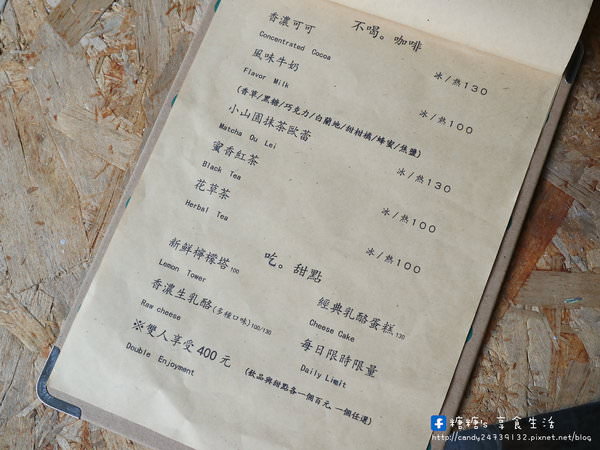 不喝。咖啡
香濃可可 冰/熱130
Concentrated Cocoa
風味牛奶 冰/熱100
Flavor Milk
(香草/黑糖/巧克力/白蘭地/甜柑橘/蜂蜜/焦鹽)
小山園抹茶歐蕾 冰/熱130
Matcha Ou Lei
蜜香紅茶 冰/熱100
Black Tea
花草茶 冰/熱100
Herbal Tea
吃。甜點
新鮮檸檬塔100 經典乳酪蛋糕130
Lemon Tower Cheese Cake
香濃生乳酪(多種口味)100/130 每日限時限量
Raw cheese Daily Limit
※雙人享受400元 (飲品與甜點各一個百元,一個任選)
Double Enjoyment
糖糖's 享食生活
http://candy24739132.pixnet.net/blog